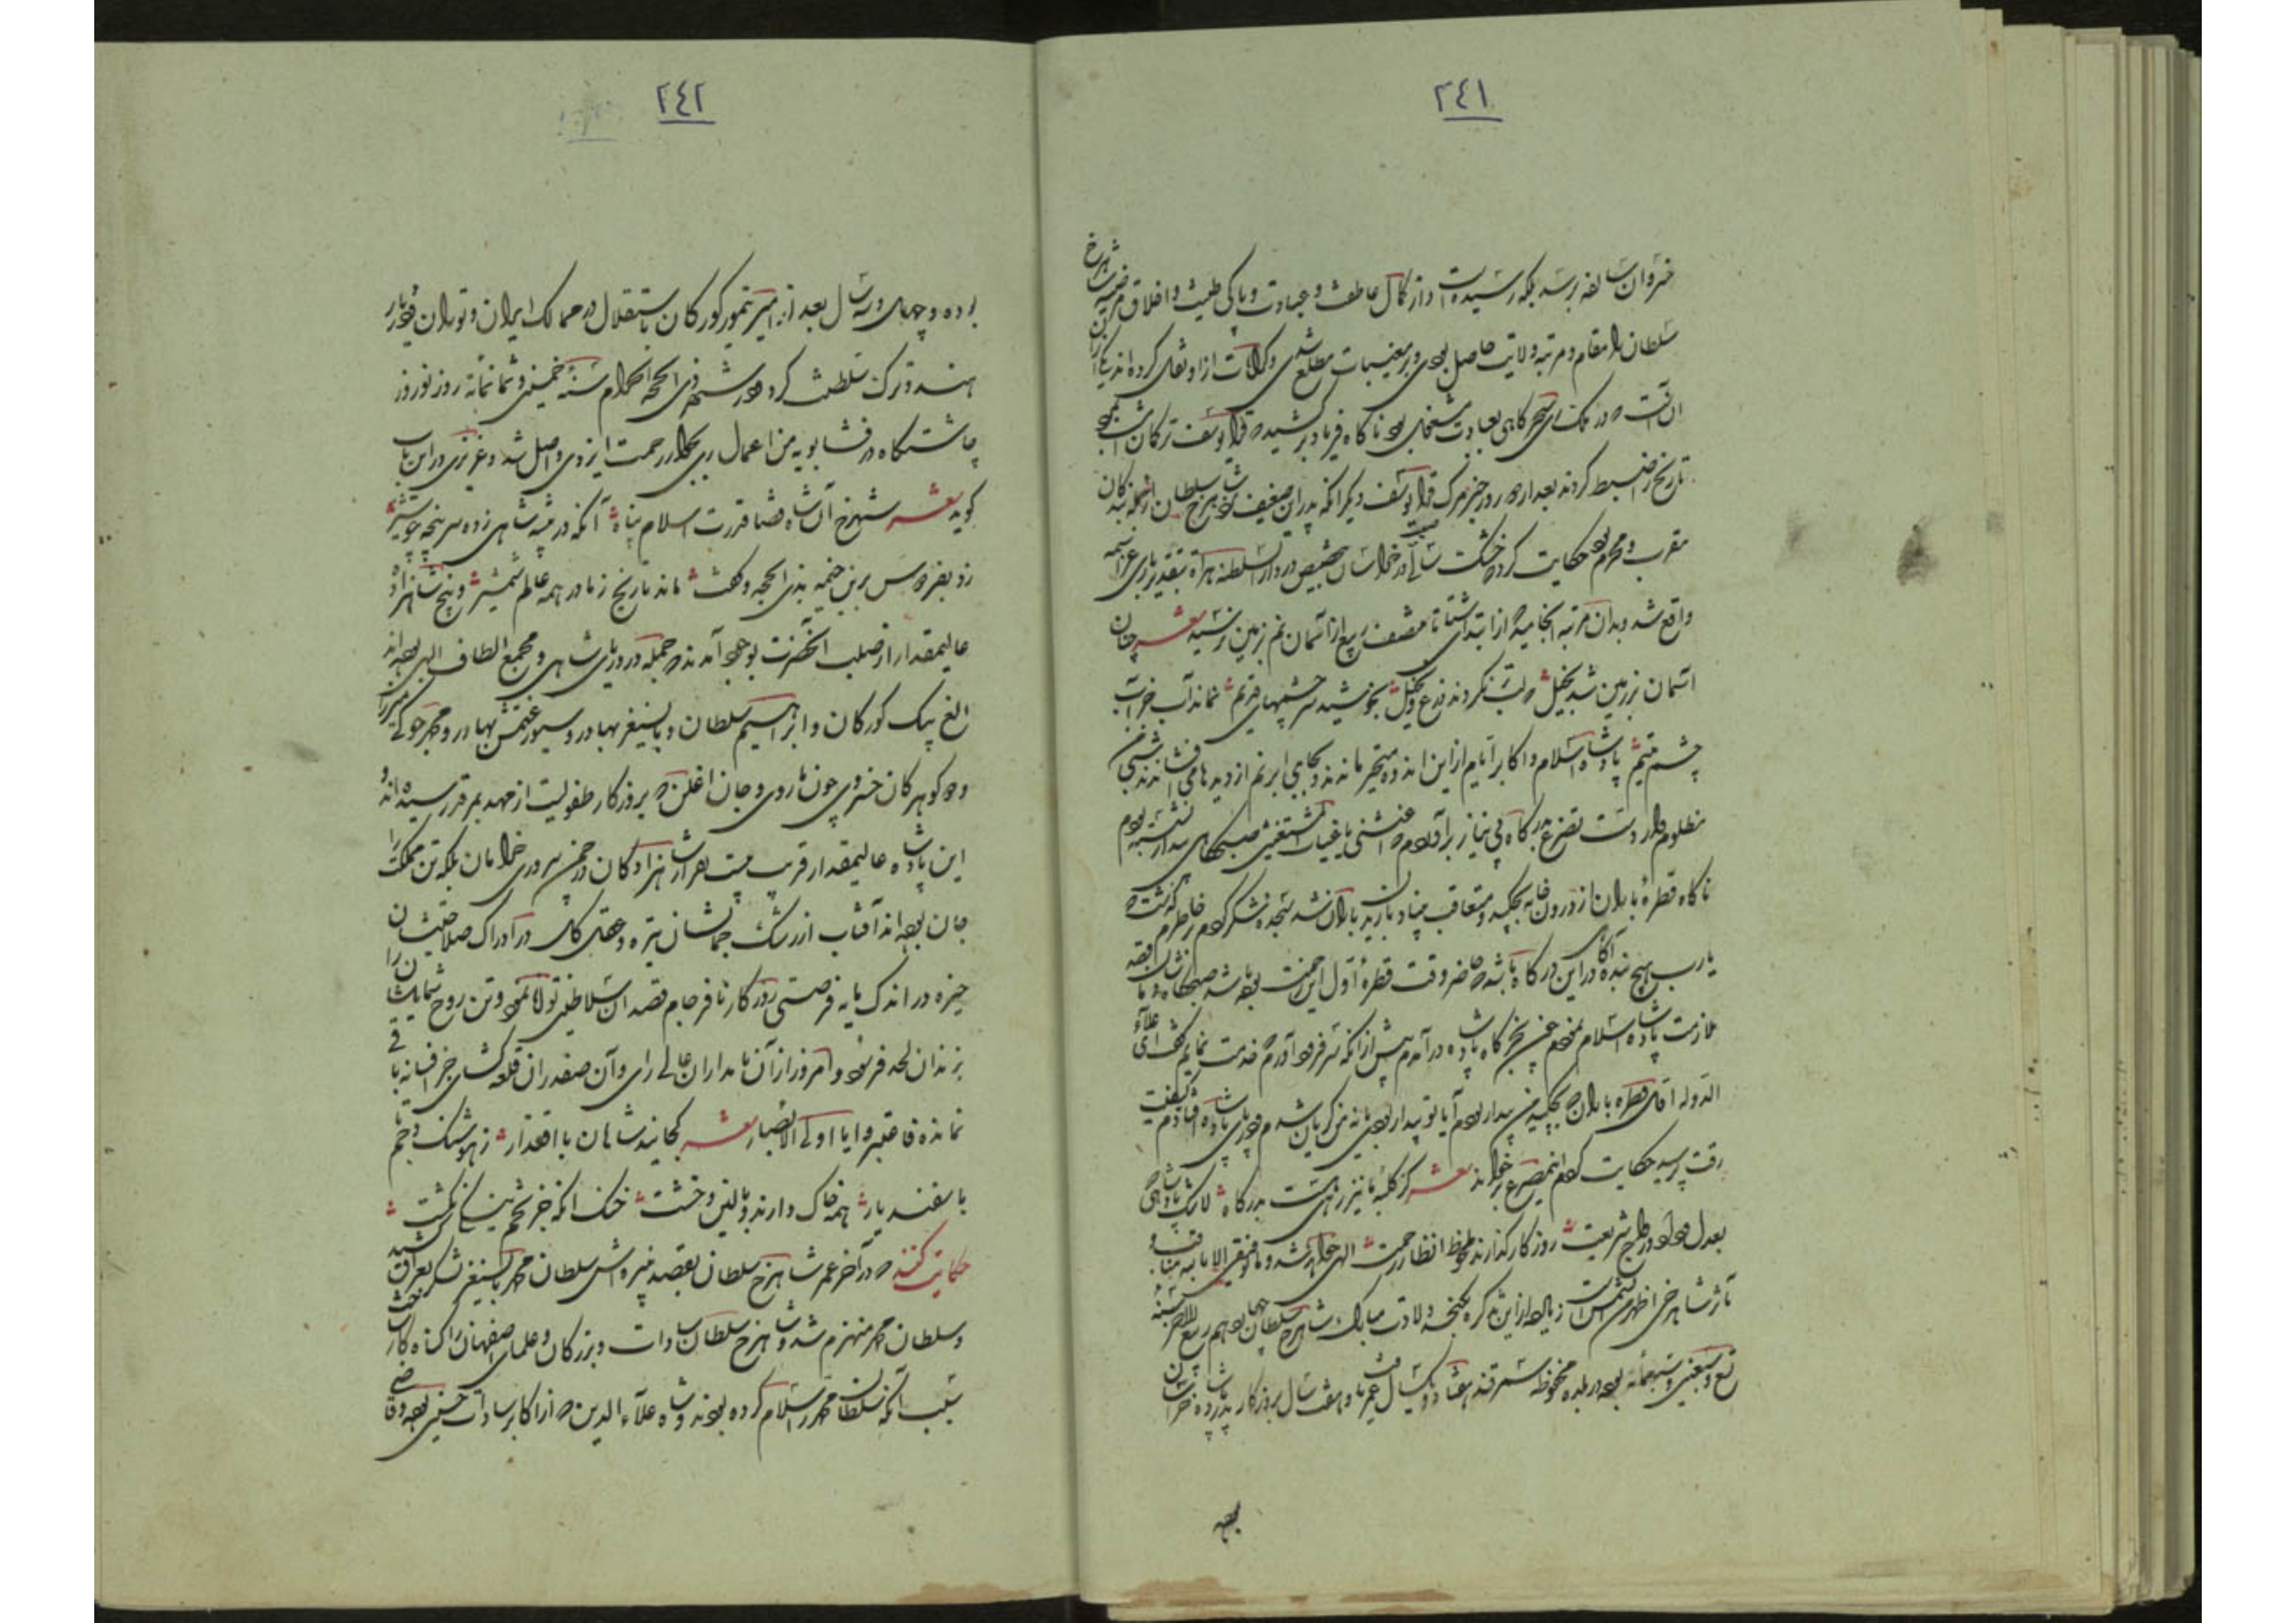 ٢٤١
خسروان سالفه برسد بلکه رسیده است و از کمال عاطفت و عبادت و پاکی طینت و اخلاق مرضیه شاهرخ
سلطان را مقام و مرتبه ولایت حاصل بوده و بر مغیبات مطلع شدی و کرامات از او نقل کرده‌اند یکی از آن
آن است که در سحرگاهی بعبادت مشغول بود ناگاه فریاد برکشید که قرا یوسف ترکمان
تاریخ را ضبط کردند بعد از روز خبر مرگ قرا یوسف دیگر آنکه پدر این ضعیف که شاهرخ سلطان را از جمله بندگان
مقرب و محرم بود حکایت کرد که خشک سالی در خراسان بتخصیص در دار السلطنه هراة بتقدیر باری عز اسمه
واقع شد و بدان مرتبه انجامید که از ابتدای شتا تا منتصف ربیع از آسمان نم بزمین نرسید شعر چنان
آسمان بر زمین شد بخیل که لب تر نکردند زرع و نخیل بخوشید سرچشمهای قدیم نماند آب جز آب
چشم یتیم پادشاه اسلام و اکابر ایام از این انده متحیر ماندند و بجای ابر نم از دیدها می افشاندند شبی من
مظلوم وار دست تضرع بدرگاه بی نیاز برآوردم که اغثنی یا غیاث المستغیثین صبحگاهی بیدار نشسته بودم
ناگاه قطرهٔ باران از درون خانه بچکید و متعاقب بنیاد باریدن باران شد سجده شکر کردم و در خاطرم گذشت که
یارب هیچ بنده آگاهی در این درگاه باشد که حاضر وقت قطرهٔ اول این رحمت بوده باشد صبحگاه
ملازمت پادشاه اسلام نمودم چون بخرگاه پادشاه درآمدم پیش از آنکه سر فرود آورم و خدمت نمایم گفت ای علاء
الدوله اول قطره باران که بچکید من بیدار بودم آیا تو بیدار بودی یا نه من گریان شدم و در پای پادشاه افتادم کیفیت
رقت پرسید حکایت کردم این مصرع بخواند شعر کز کلبه ما نیز رهی هست بدرگاه لاشک پادشاهی که
بعدل و داد و رواج شریعت روزگار گذراند ملحوظ انظار رحمت الهی خواهد شد و ما توفیقی الا بالله مناقب و
مآثر شاهرخی اظهر من الشمس است زیاده از این تذکره نگنجد ولادت مبارک شاهرخ سلطان چهاردهم ربیع الآخر سنه
تسع و سبعین و سبعمأنه بوده در بلده محفوظه سمرقند هفتاد و یکسال عمر یافت و هفت سال بروزگار پدر پادشاه خراسان
بوده
٢٤٢
بوده و چهل و سه سال بعد از امیر تیمور کورکان باستقلال در ممالک ایران و توران و دیار
هند و ترک سلطنت کرد و در شهر ذی الحجه الحرام سنه خمسین و ثمانمائه روز نوروز
چاشتگاه در فشابویه من اعمال ری بجوار رحمت ایزدی واصل شد و عزیزی در این باب
گوید شعر شهرخ آن شاه قضا قدرت اسلام پناه آنکه در بیشه شاهی زده سر پنجه چو شیر
زد بفردوس برین خیمه بذی الحجه و گفت ماند تاریخ ز ما در همه عالم شمشیر و پنج شاهزاده
عالیمقدار از صلب آنحضرت بوجود آمدند که جمله در دریای شاهی و مجمع الطاف الهی بوده‌اند
الغ بیک کورکان و ابراهیم سلطان و بایسنغر بهادر و سیورغتمش بهادر و محمد جوکی میرزا
و دو گوهر کان خسروی چون یاروی و جان اغلن که بروزگار طفولیت از مهد بمرقد رسیده‌اند و
این پادشاه عالیمقدار قریب بیست نفر از شاهزادگان در چمن سروری خرامان بلکه تن مملکت را
جان بوده‌اند آفتاب از رشک جمالشان تیره و عقل کل در ادراک صلاحیتشان
خیره در اندک مایه فرصتی روزگار نافرجام قصد آن سلاطین تولانمود و تن روح شمایلشان را
بزندان لحد فرسود و امروز از آن نامداران عالی رای و آن صفدران قلعه گشای جز افسانه باقی
نمانده فاعتبروا یا اولی الابصار شعر کجایند شاهان با اقتدار ز هوشنگ و جم تا
باسفندیار همه خاک دارند بالین و خشت خنک آنکه جز تخم نیکی نکشت
حکایت کنند که در آخر عمر شاهرخ سلطان بقصد نبیره‌اش سلطان محمد بایسنغر لشکر بعراق کشید
و سلطان محمد منهزم شد و شاهرخ سلطان سادات و بزرگان و علمای اصفهان را گناه کار ساخت
بسبب آنکه سلطان محمد را سلام کرده بودند و شاه علاء الدین که از اکابر سادات حسینی بوده و قاضی